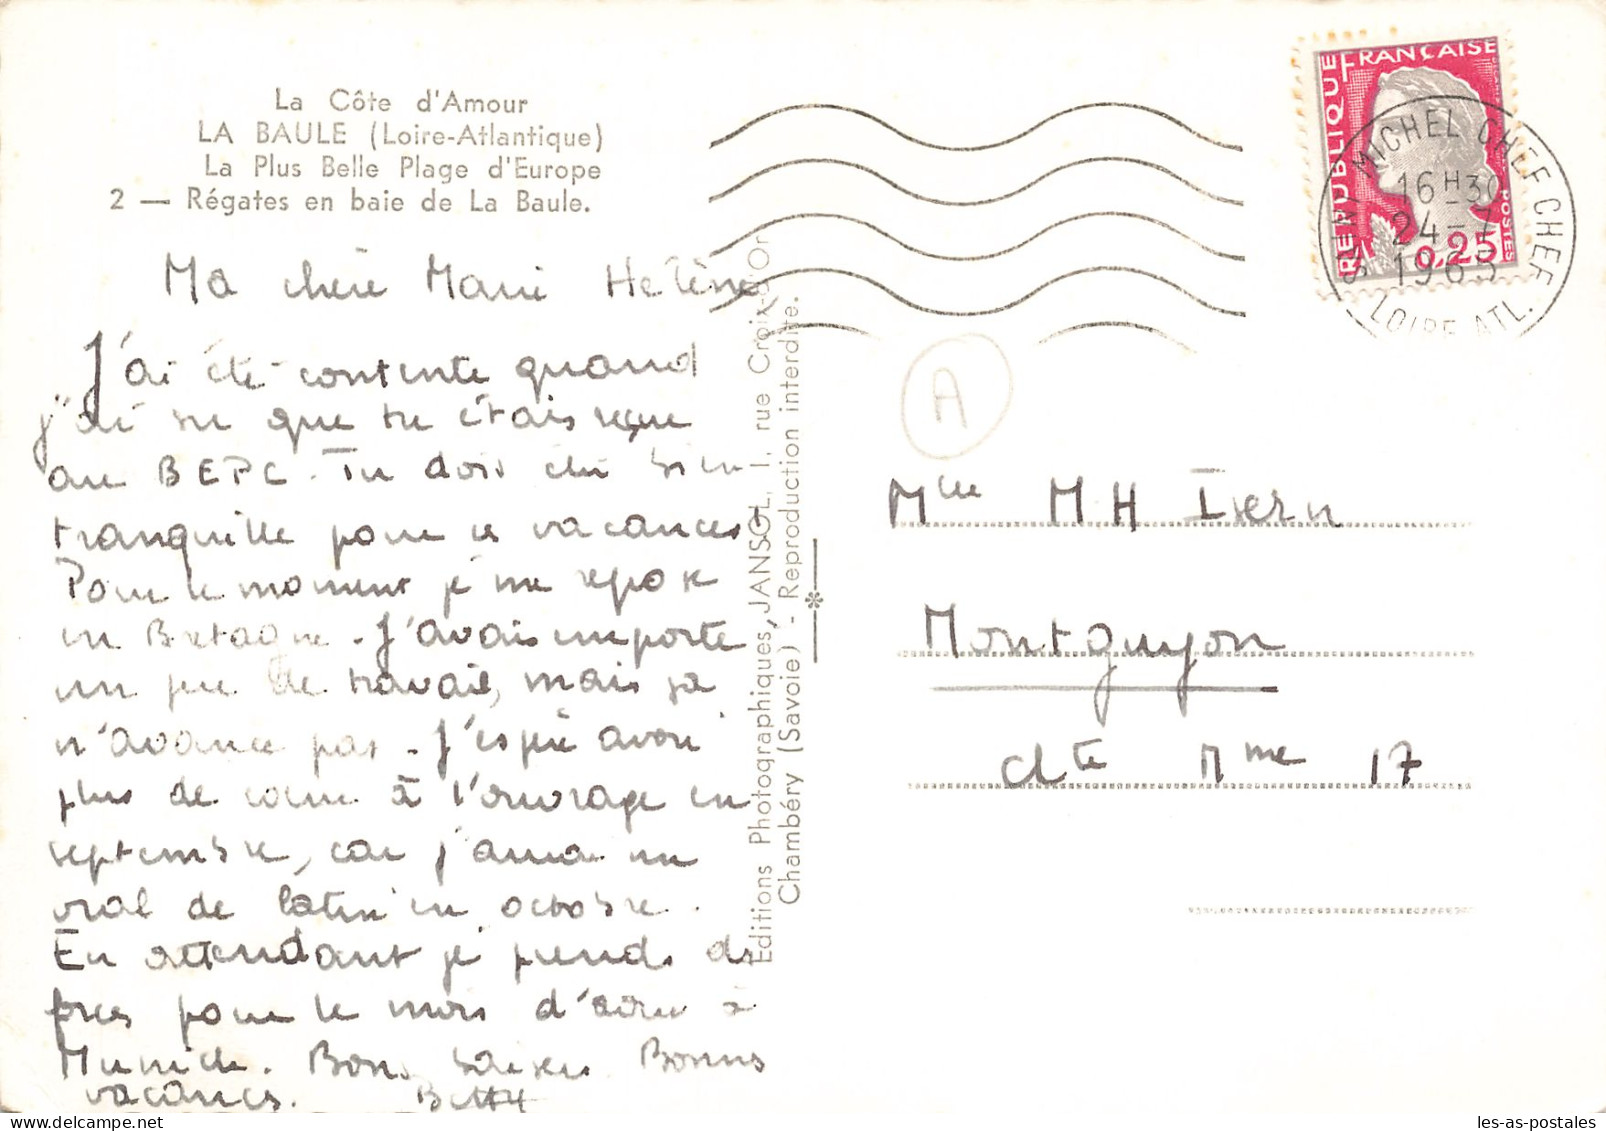 La Côte d'Amour
LA BAULE (Loire-Atlantique)
La Plus Belle Plage d'Europe
2 — Régates en baie de La Baule.
Ma chère Marie Hélène
J'ai été contente quand
j'ai su que tu étais reçue
au BEPC. Tu dois être bien
tranquille pour les vacances
Pour le moment je me repose
en Bretagne. J'avais emporté
un peu de travail, mais ça
n'avance pas. J'espère avoir
plus de cœur à l'ouvrage en
septembre, car j'aurai un
oral de latin en octobre.
En attendant je prends des
forces pour le mois d'août à
Munich. Bons baisers Bonnes
vacances. Betty
Editions Photographiques JANSOL, 1, rue Croix-d'Or
Chambéry (Savoie) - Reproduction interdite.
REPUBLIQUE FRANÇAISE
POSTES
0,25
SAINT MICHEL CHEF CHEF
16H30
24-7
1963
LOIRE ATL.
A
Mlle MH Isern
Montguyon
Chte Mme 17
les-as-postales